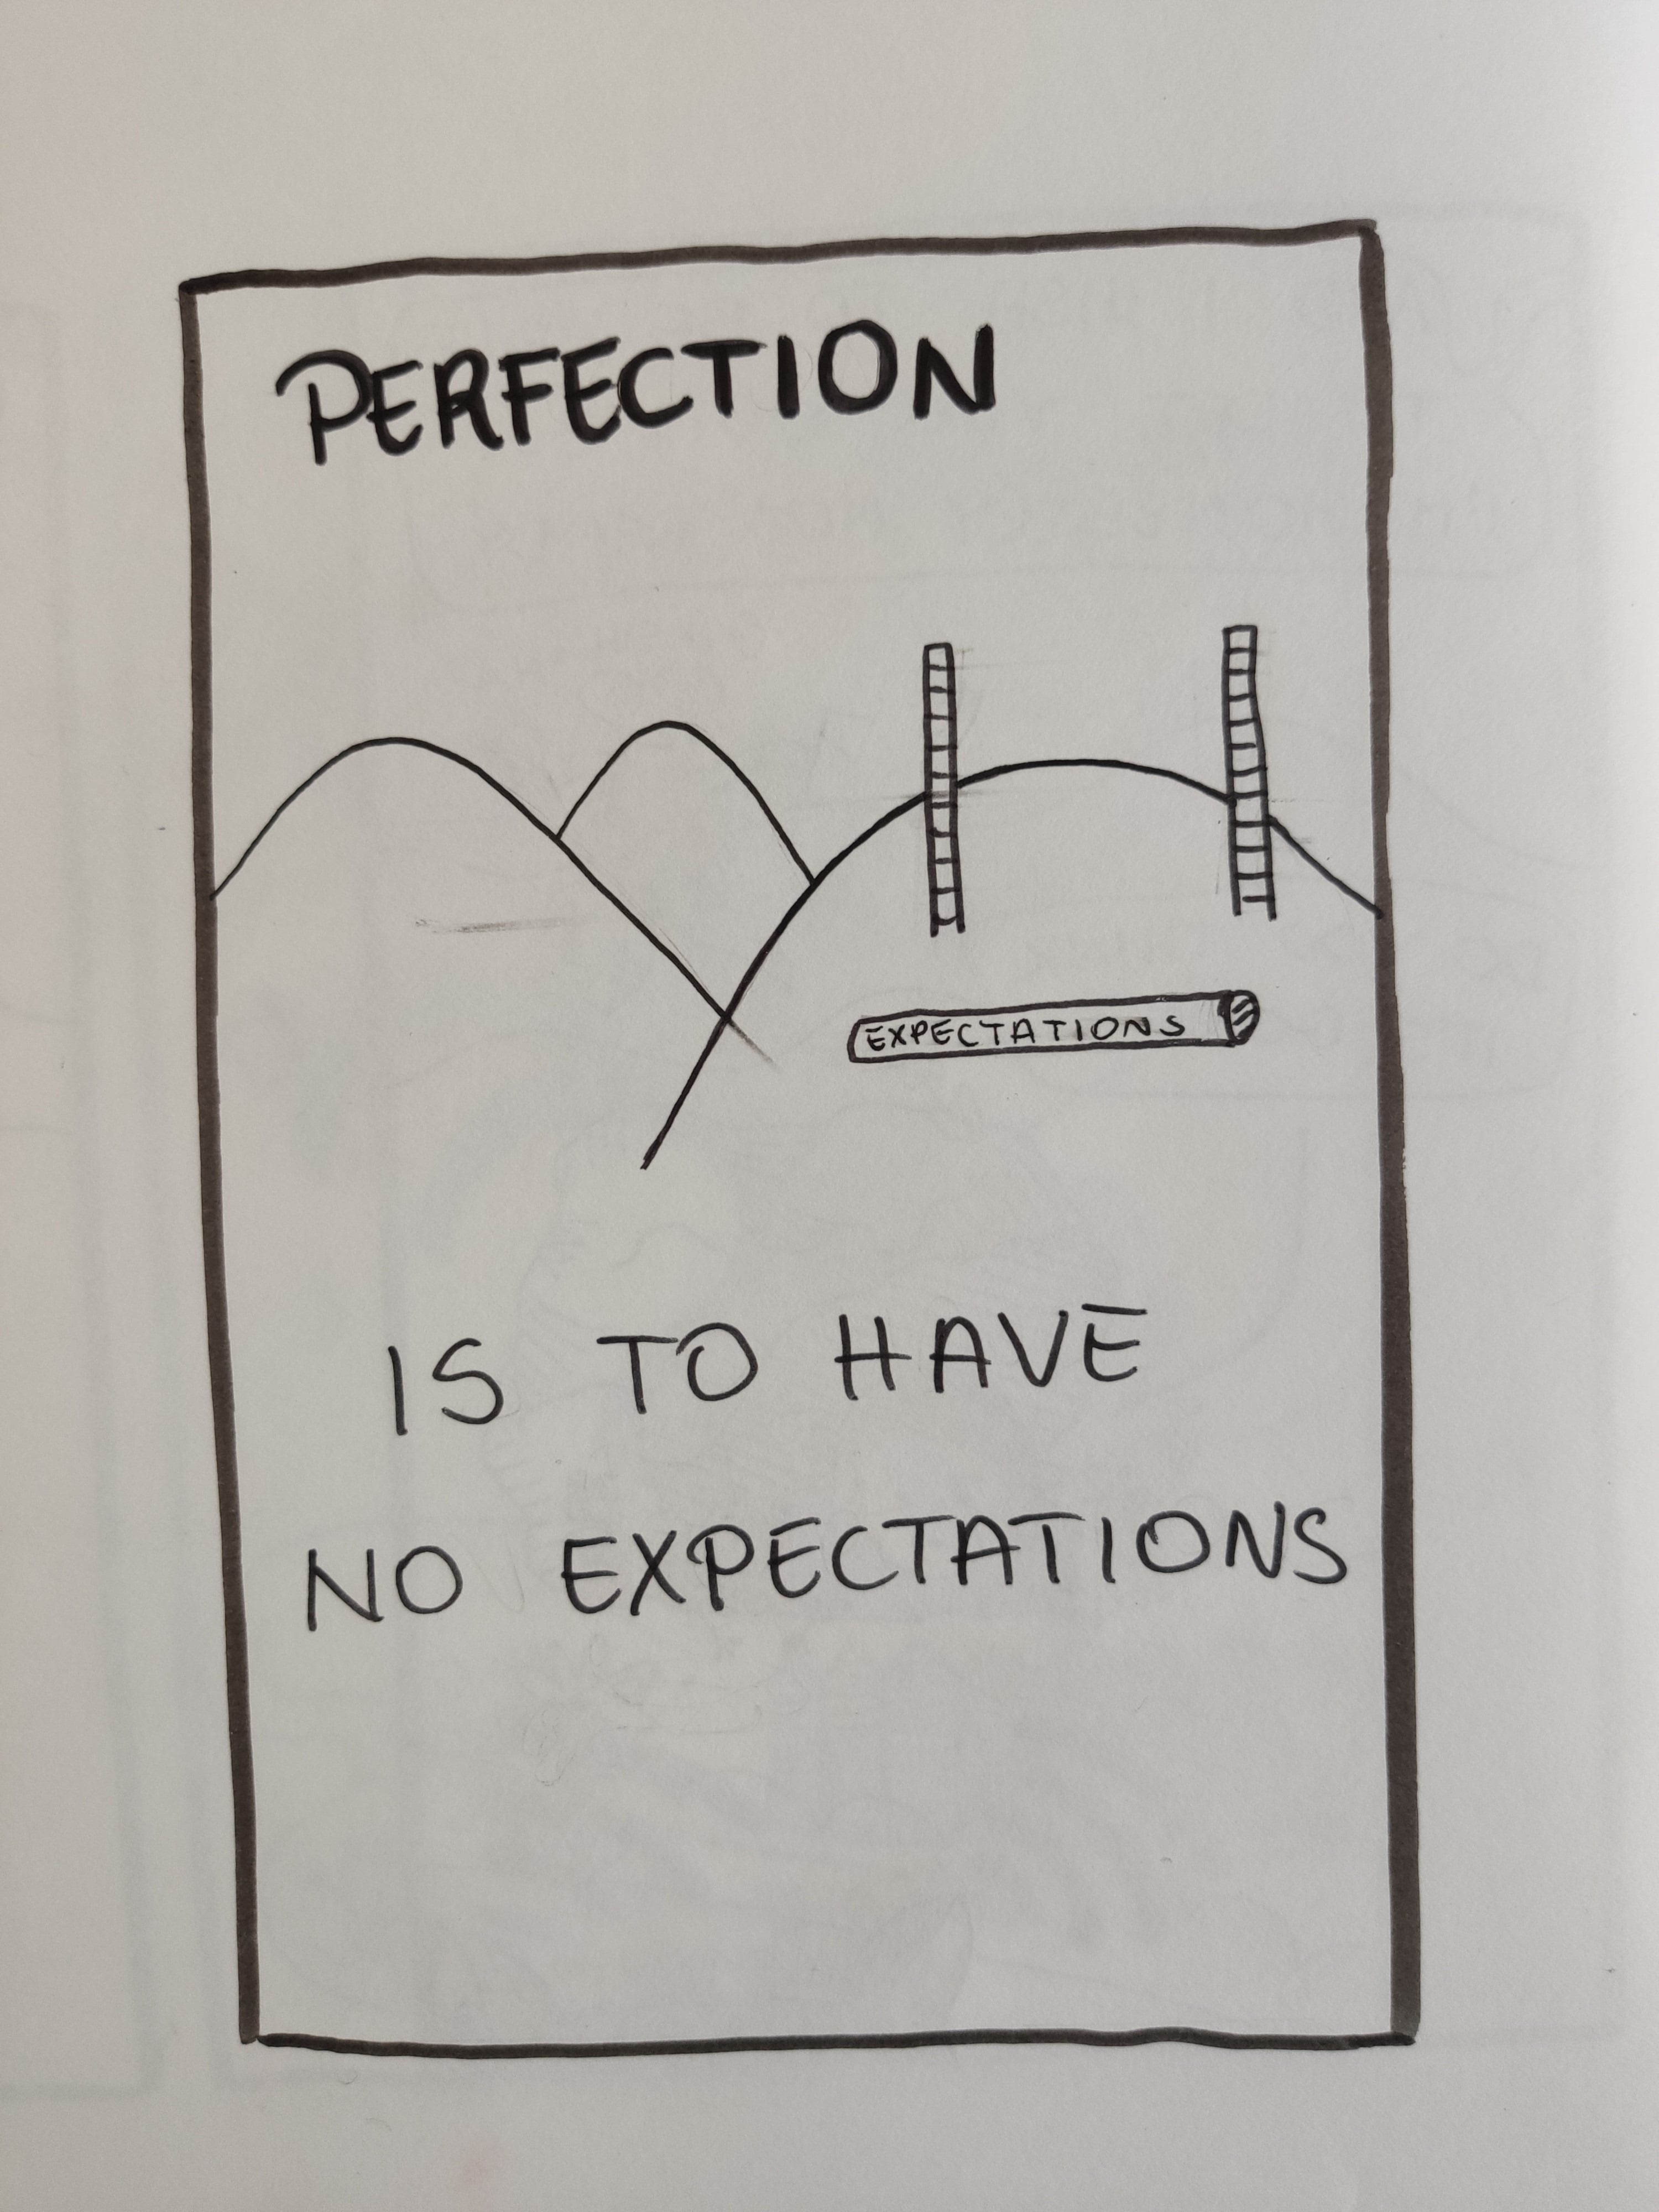 PERFECTION
EXPECTATIONS
IS TO HAVE
NO EXPECTATIONS